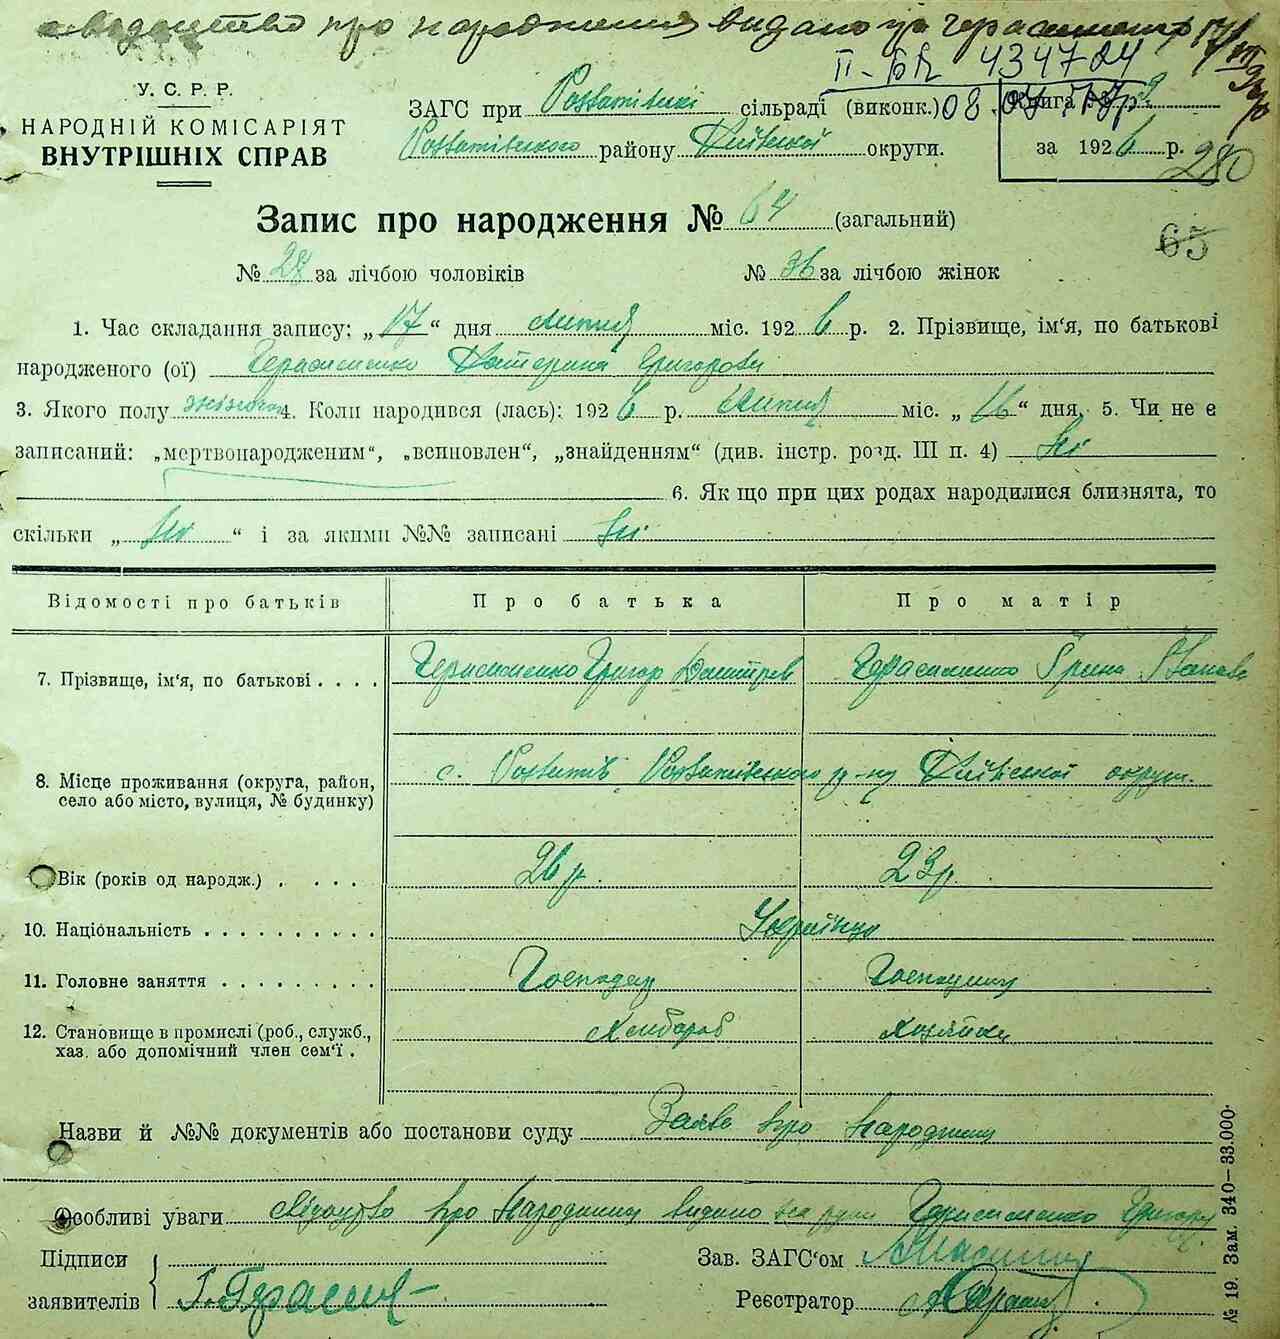 свідоцтво про народження видано гр Герасименко 17/VII
II-БК 434724
У. С. Р. Р.
НАРОДНІЙ КОМІСАРІЯТ
ВНУТРІШНІХ СПРАВ
ЗАГС при сільраді (виконк.) 08.
району Київської округи.
Книга №
за 1926 р.
280
Запис про народження № 64 (загальний)
65
№ 28 за лічбою чоловіків № 36 за лічбою жінок
1. Час складання запису: „17“ дня липня міс. 1926 р. 2. Прізвище, ім'я, по батькові
народженого (ої) Герасименко Катерина Григорови
3. Якого полу жіночої 4. Коли народився (лась): 1926 р. липня міс. „16“ дня, 5. Чи не є
записаний: „мертвонародженим“, „всиновлен“, „знайденням“ (див. інстр. розд. III п. 4) Ні
6. Як що при цих родах народилися близнята, то
скільки „Ні“ і за якими №№ записані Ні
Відомості про батьків Про батька Про матір
7. Прізвище, ім'я, по батькові . . . . Герасименко Григор Дмитров Герасименко Ірина Іванова
8. Місце проживання (округа, район, село або місто, вулиця, № будинку) с. р-ну Київської округи.
Вік (років од народж.) . . . . 26 р. 23 р.
10. Національність . . . . . . . . . . Українці
11. Головне заняття . . . . . . . . . Господар Господиня
12. Становище в промислі (роб., служб., хаз. або допомічний член сем'ї . Хлібороб Хазяйка
Назви й №№ документів або постанови суду Заява про Народження
Особливі уваги Свідоцтво про Народження видано на руки Герасименко Григору
Підписи
заявителів Г. Герасим
Зав. ЗАГС'ом
Реєстратор
№ 19. Зам. 340—33.000·